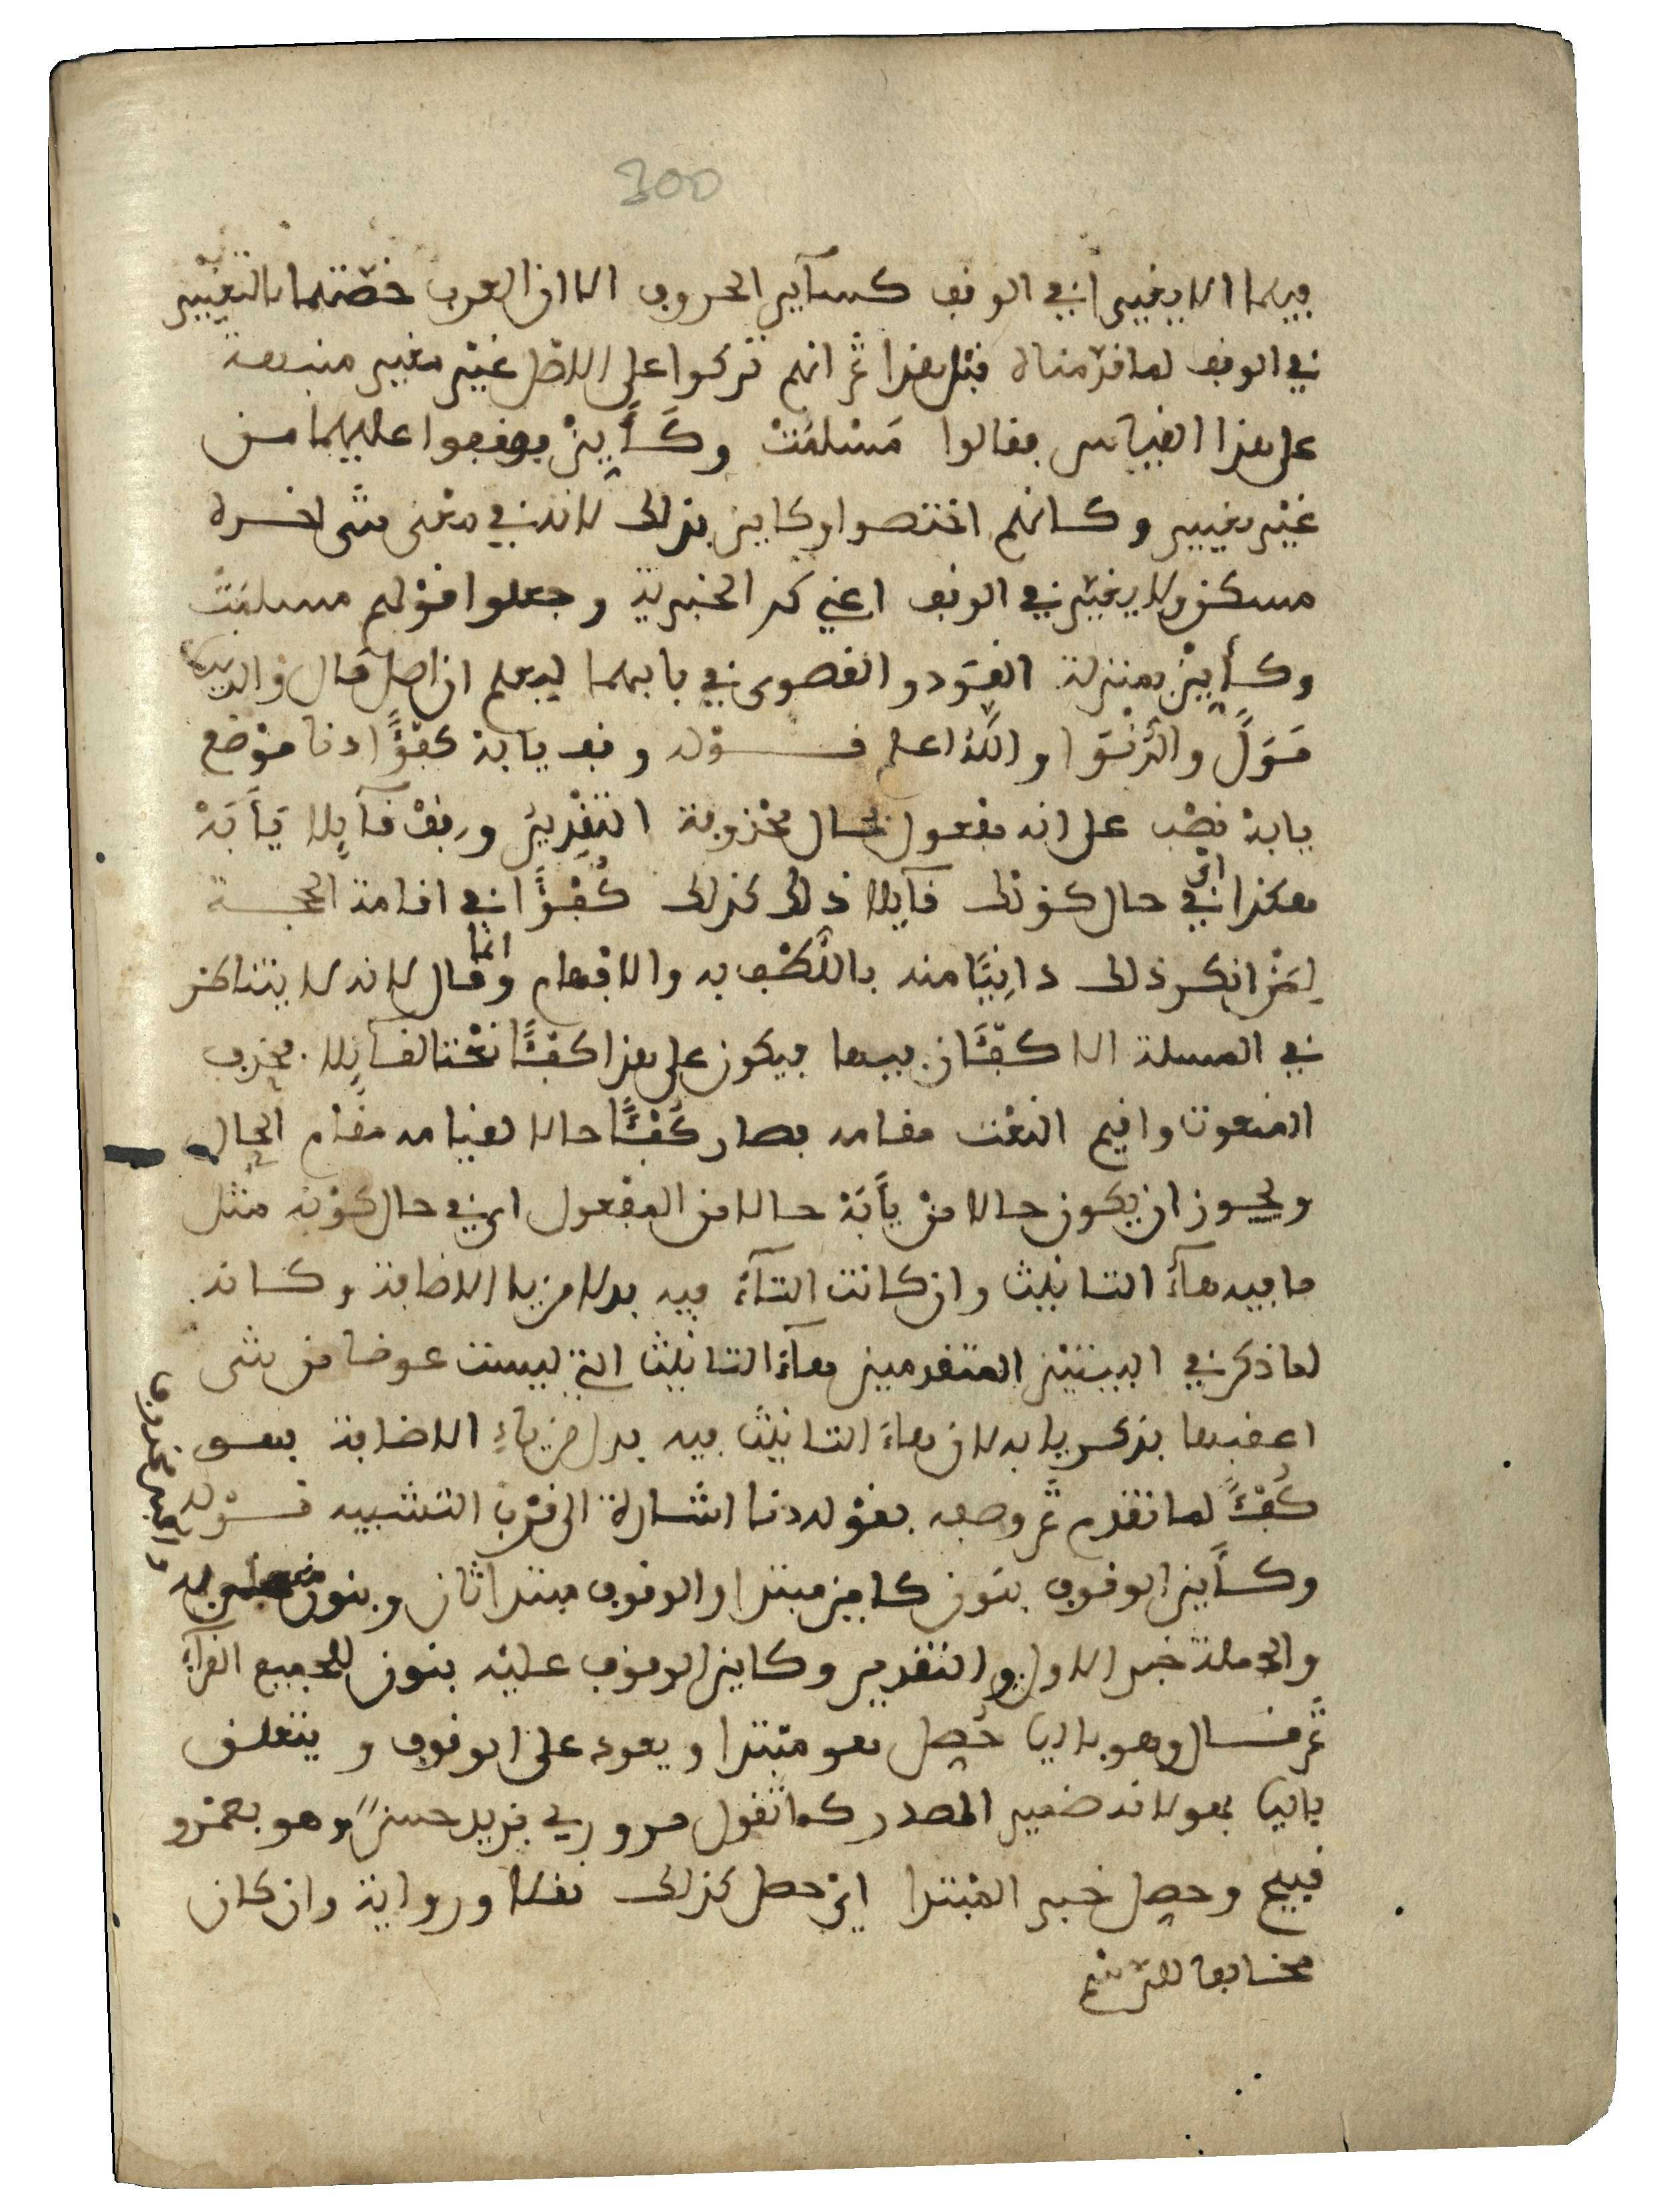 300
فيهما الا يغيرا في الوقف كسآير الحروف الا ان العرب خصتهما بالتغيير
في الوقف لما قدّمناه قبل هذا ثمّ انهم تركوا على الاصل غيْر مغير منبهة
على هذا القياس فقالوا مَسْلمَتْ وكَأَيِنْ فوقفوا عليهما من
غيْر تغيير وكانهم اختصوا وكاين بذلك لانه في معْنى شىء اخره
مسكن ولا يغيّر في الوقف اعني كم الخبرية وجعلوا قوْلهم مسلمَتْ
وكأيِنْ بمنزلة القَوَد والقصوى في بابهما ليعلم ان اصل قال والدنيا
قَوَلَ والدُّنْوَا واللّه اعلم قوْله وقف يابهْ كفؤًا دنا موْضع
يابهْ نصْب على انه مفْعول لحال محْذوفة التقْدِيرُ وقِفْ قآيِلا يَأَبَهْ
هكذا أي في حال كونك قآيِلا ذلك كذلك كُفْؤًا في اقامة الحجة
لِمَنْ انكر ذلك دانِيًا منه بالكشْف به والافهام وانما قال لانه لا يتناكر
في المسلة الا كفْئَان فيها فيكون على هذا كفْئًا نعْتا لقآيِلا فحذف
المنعوت واقيم النعْت مقامه فصار كُفْئًا حالا لقيامه مقام الحال
ويجوز ان يكون حالا منْ يأَبَهْ حالا من المفْعول اي في حال كوْنه مثْل
ما فيه هآءُ التانيث وان كانت التآءُ فيه بدلا من يا الاضافة وكانه
لما ذكر في البيتيْن المتقدمين هآءَ التانيث التي ليست عوضا من شى
اعقبها بذكر يا به لان هاءَ التانيث فيه بدل من ياءِ الاضافة فهو
كُفْءٌ لما تقدم ثمّ وصفه بقوْله دنا اشارة الى قرْب التشبيه قوْله
وكأين الوقوف بنون كاين مبتدا والوقوف مبتدا ثان وبنون
والجملة خبر الاول والتقدير وكاين الوقوف عليْه بنون لجميع القرآءِ
ثمّ قال وهو باليا حُصِل هو مبْتدا ويعود على الوقوف ويتعلق
باليا بهو لانه ضمير المصدر كما تقول مروري بزيد حسنٌ وهو بعمْرو
قبيح وحصل خبر المبْتدا ايْ حصل كذلك نقلا ورواية وان كان
مخالفا للرّسْم